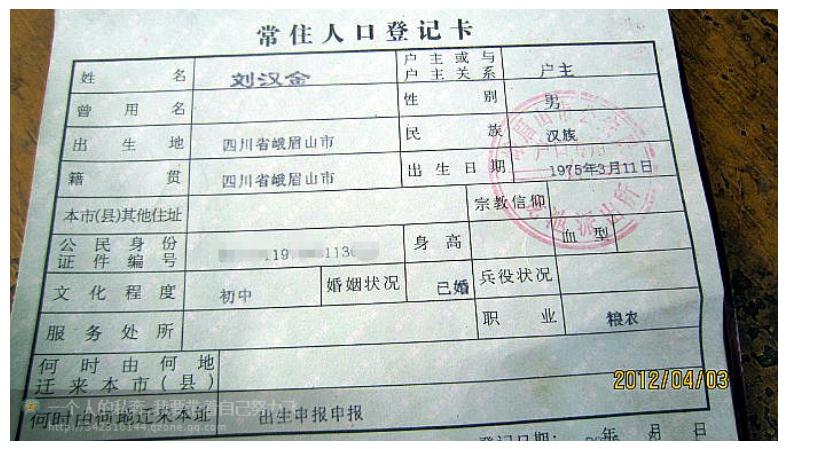 常住人口登记卡
姓名 刘汉金 户主或与户主关系 户主
曾用名 性别 男
出生地 四川省峨眉山市 民族 汉族
籍贯 四川省峨眉山市 出生日期 1975年3月11日
本市(县)其他住址 宗教信仰
公民身份证件编号 身高 血型
文化程度 初中 婚姻状况 已婚 兵役状况
服务处所 职业 粮农
何时由何地迁来本市(县)
何时由何地迁来本址 出生申报申报
登记日期: 年 月 日
2012/04/03
一个人的私奔 我要带着自己努力飞
http://342316144.qzone.qq.com